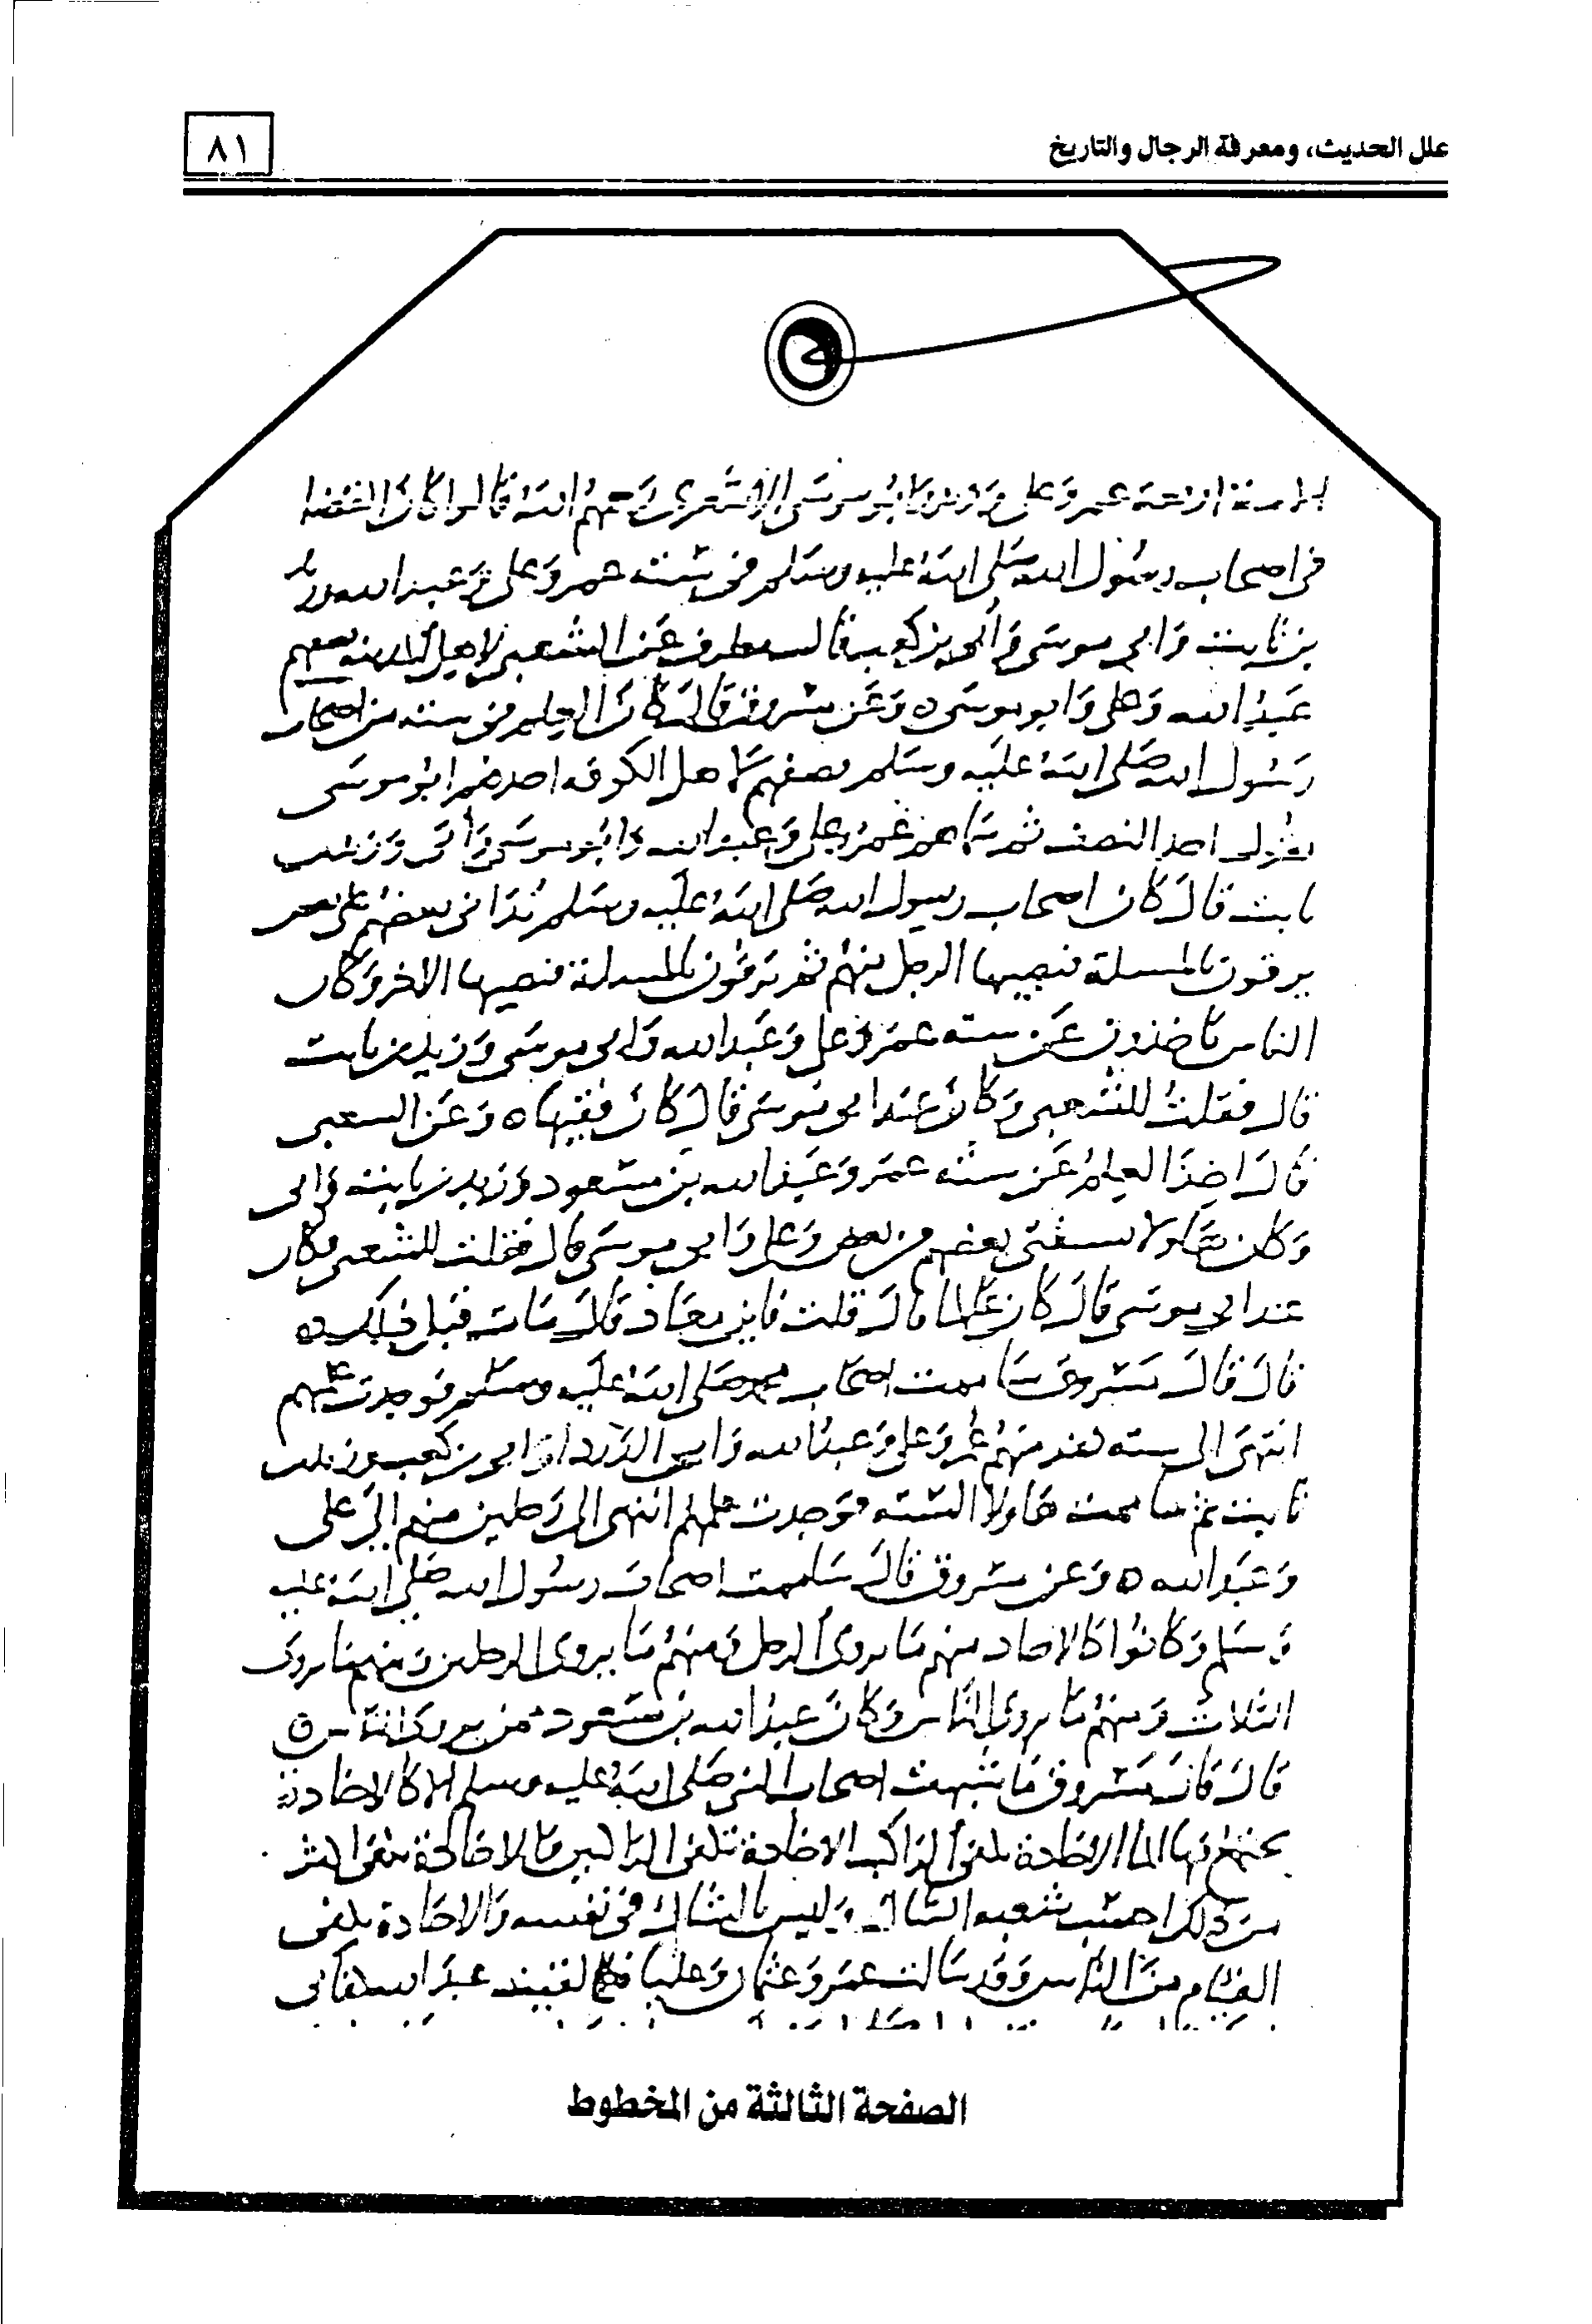 علل الحديث، ومعرفة الرجال والتاريخ
٨١
عمر وعلى وابو موسى الاشعرى رحمهم الله قالوا كان القضا
فى اصحاب رسول الله صلى الله عليه وسلم فى ستة عمر وعلى وعبد الله وزيد
بن ثابت وابى موسى وابى بن كعب قال مطرف عن الشعبى لاهل بعضهم
عبد الله وعلى وابو موسى ه وعن مسروق قال كان العلم فى ستة من اصحاب
رسول الله صلى الله عليه وسلم نصفهم لاهل الكوفه احدهم ابو موسى
احد النصف ثم عمر وعلى وعبد الله وابو موسى وابى وزيد بن
ثابت قال كان اصحاب رسول الله صلى الله عليه وسلم بعضهم على بعض
المسلة فيصيبها الرجل منهم ثم بالمسلة فيصيبها الاخر وكان
الناس ياخذون عن ستة عمر وعلى وعبد الله وابى موسى وزيد بن ثابت
قال فقلت للشعبى وكان عند ابى موسى قال كان فقيها ه وعن الشعبى
قال اخذ العلم عن ستة عمر وعبد الله بن مسعود وزيد بن ثابت وابى
وكان هاولا يستفتى بعضهم من بعض وعلى وابى موسى قال فقلت للشعبى وكان
عند ابى موسى قال كان عالما قال قلت فاين معاذ قال مات قبل ذلك ه
قال قال مسروق شاممت اصحاب محمد صلى الله عليه وسلم فوجدت علمهم
انتهى الى ستة نفر منهم عمر وعلى وعبد الله وابى الدرداء وابى بن كعب وزيد بن
ثابت ثم شاممت هاولا الستة فوجدت علمهم انتهى الى رجلين منهم الى على
وعبد الله ه وعن مسروق قال شاممت اصحاب رسول الله صلى الله عليه
وسلم وكانوا كالاخاد منهم ما يروى الرجل ومنهم ما يروى الرجلين ومنهم ما يروى
الثلاث ومنهم ما يروى الناس وكان عبد الله بن مسعود ممن يروى الناس ه
قال قال مسروق ما شبهت اصحاب النبى صلى الله عليه وسلم الا كالاخاذة
فيها الما الاخاذة تكفى الراكب الاخاذة تكفى الراكبين والاخاذة تكفى اكثر
من ذلك احسب شعبه الشاك وليس بالشاك فى نفسه والاخاذة تكفى
الفيام من الناس وقد سالت عمر وعثمان وعليا عبد الله
الصفحة الثالثة من المخطوط